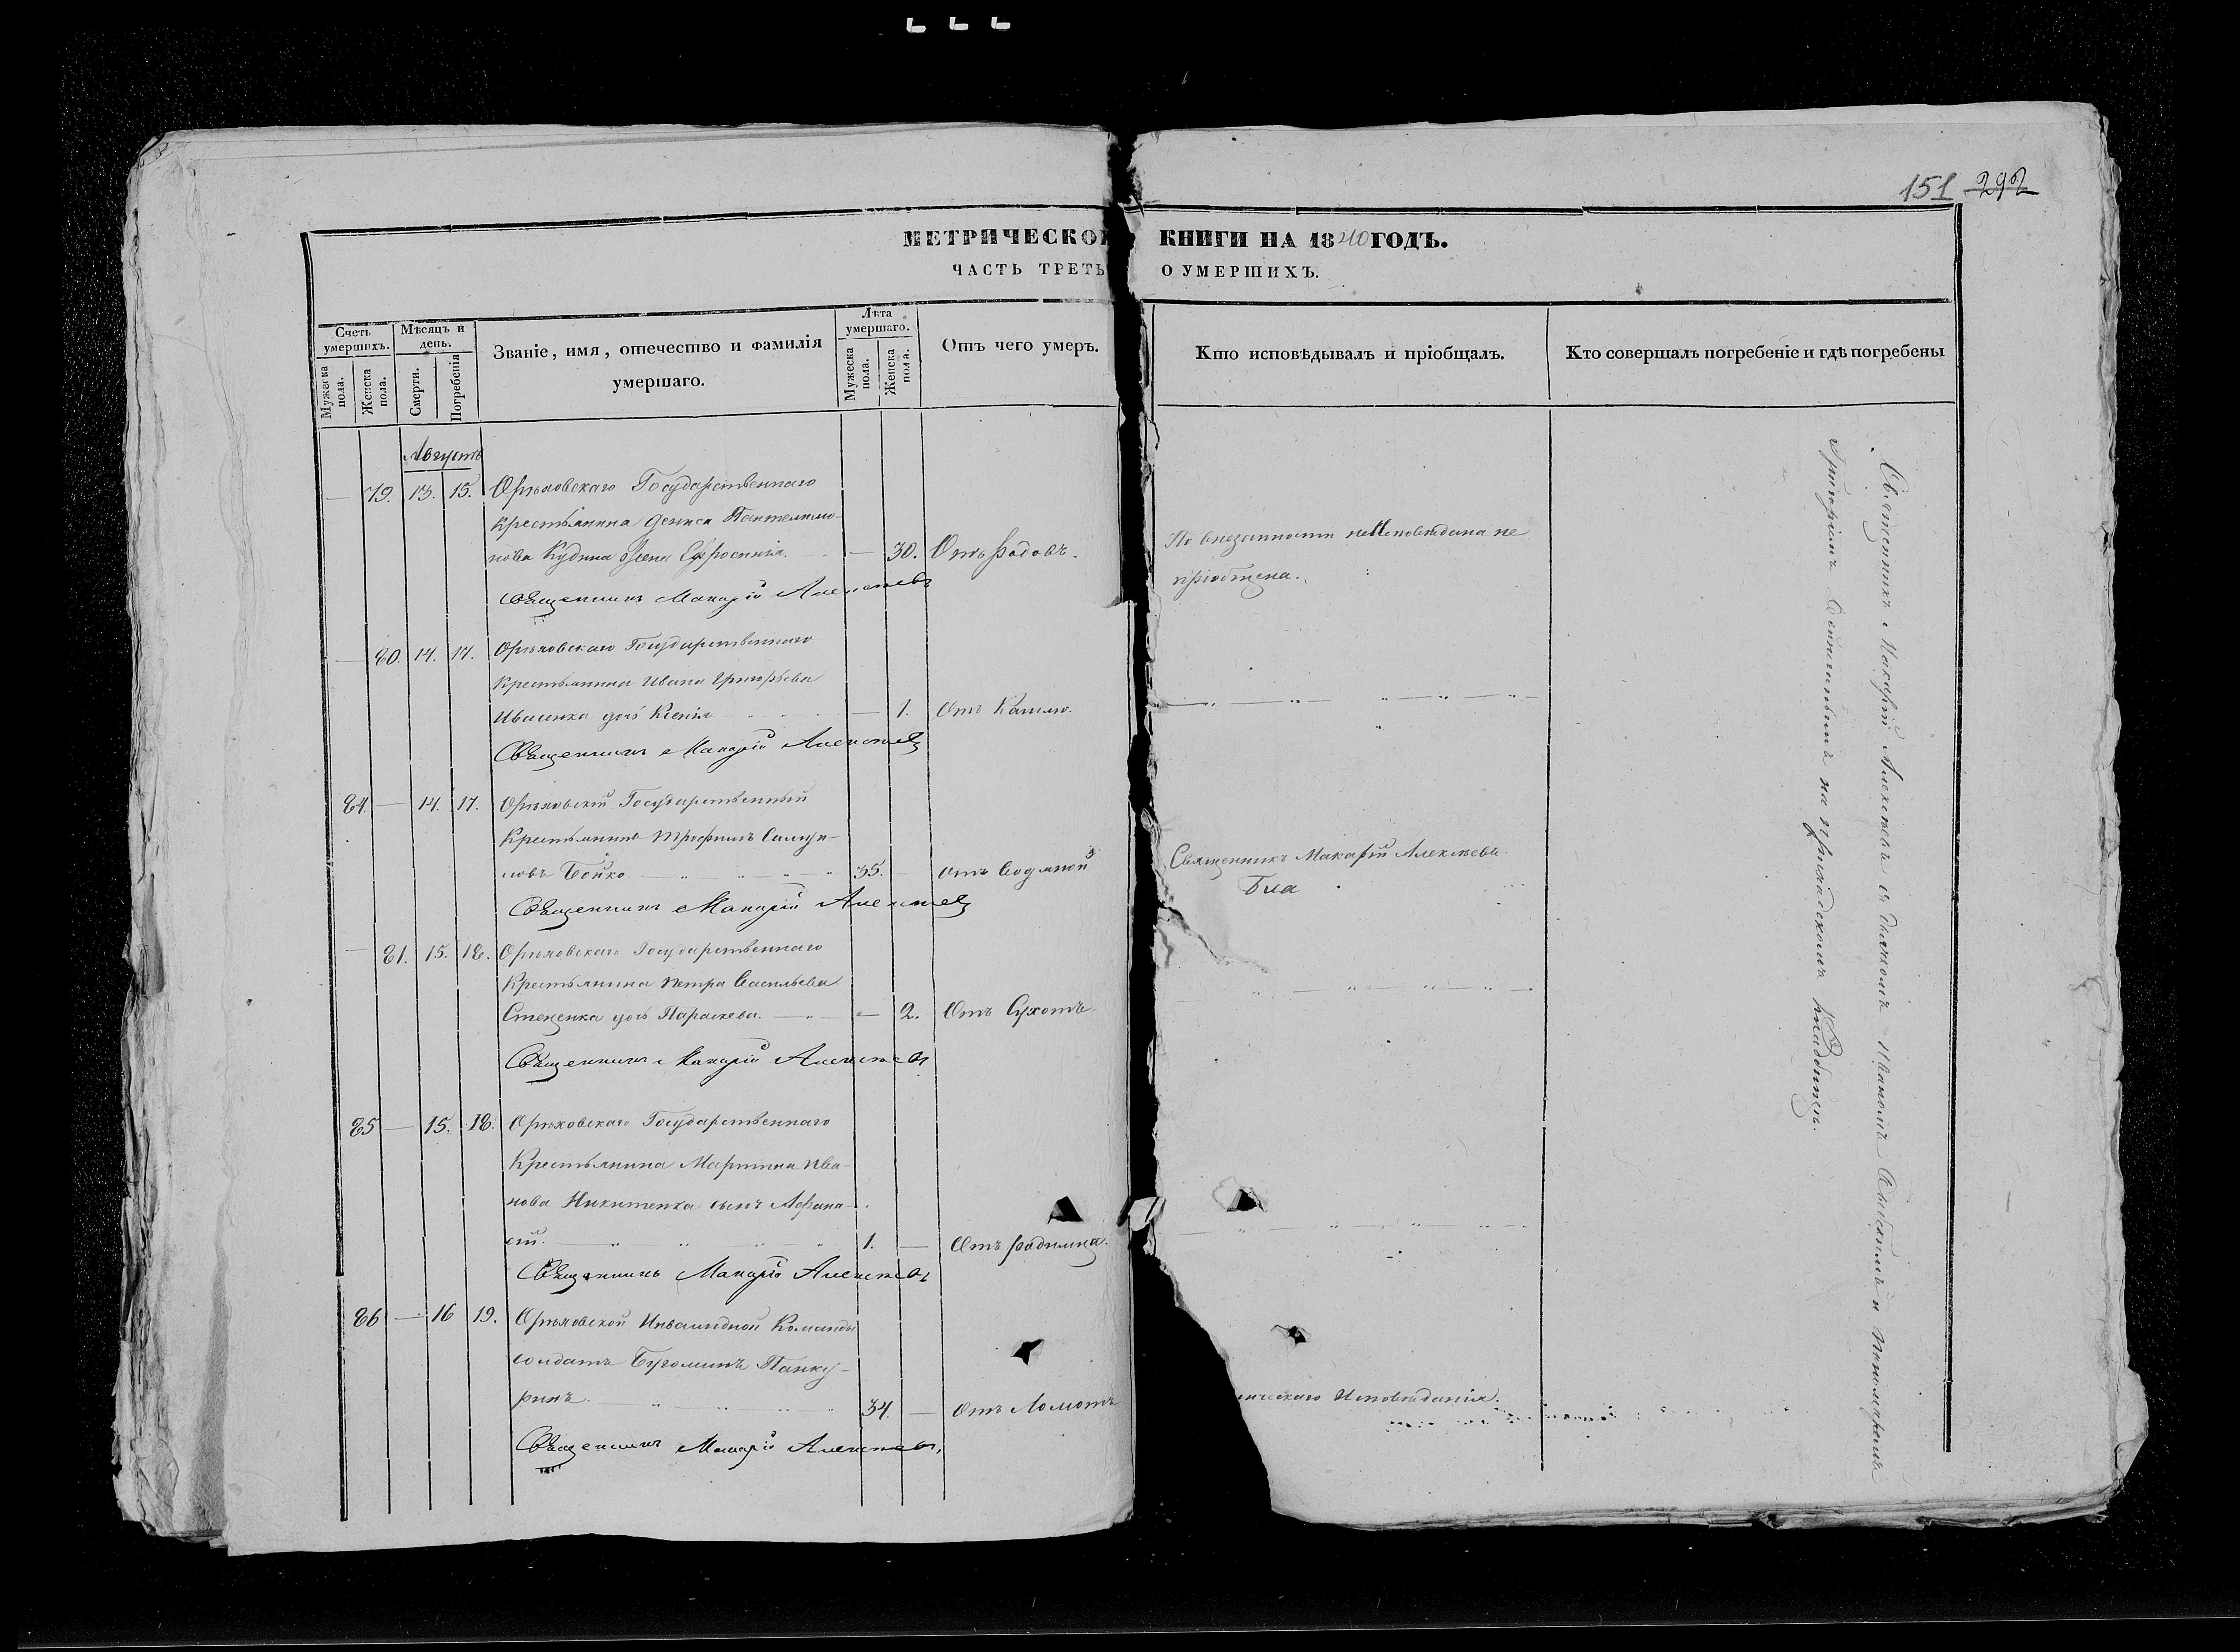 151 292
МЕТРИЧЕСКОЙ КНИГИ НА 1840 ГОДЪ.
ЧАСТЬ ТРЕТЬ О УМЕРШИХЪ.
Счетъ умершихъ.
Мужеска пола.
Женска пола.
Мѣсяцъ и день.
Смерти.
Погребенія
Званіе, имя, отечество и фамилія
умершаго.
Лѣта умершаго.
Мужеска пола.
Женска пола.
Отъ чего умеръ.
Кто исповѣдывалъ и пріобщалъ.
Кто совершалъ погребеніе и гдѣ погребены
Августъ
— 79. 13. 15. Орѣховскаго Государственнаго
Крестьянина Дениса Пантелимо-
нова Кудина жена Ефросинія. — 30. Отъ родовъ.
По внезапности неИсповѣдана не
пріобщена.
Священникъ Макарій Алексѣевъ
— 80. 14. 17. Орѣховскаго Государственнаго
Крестьянина Ивана Григорьева
Ивасенка дочь Ксенія — 1. Отъ Кашлю.
Священникъ Макарій Алексѣевъ
84. — 14. 17. Орѣховскій Государственный
Крестьянинъ Трофимъ Самуи-
ловъ Бойко 35. — отъ Водяной
Священникъ Макарій Алексѣевъ.
Священникъ Макарій Алексѣевъ
— 81. 15. 18. Орѣховскаго Государственнаго
Крестьянина Петра Васильева
Стеценка дочь Параскева. — 2. Отъ Сухотъ.
Священникъ Макарій Алексѣевъ
85 — 15. 18. Орѣховскаго Государственнаго
Крестьянина Мартина Ива-
нова Никитенка сынъ Афана-
сій. 1. — Отъ родимца.
Священникъ Макарій Алексѣевъ
86 — 16 19. Орѣховской Инвалидной Команды
солдатъ Панку-
ринъ. 34. — Отъ Ломотъ
Исповѣданія.
Священникъ Макарій Алексѣевъ.
Священникъ Макарій Алексѣевъ съ Дьякономъ Иваномъ и Пономаремъ
Григоріемъ на приходскомъ кладбищѣ.